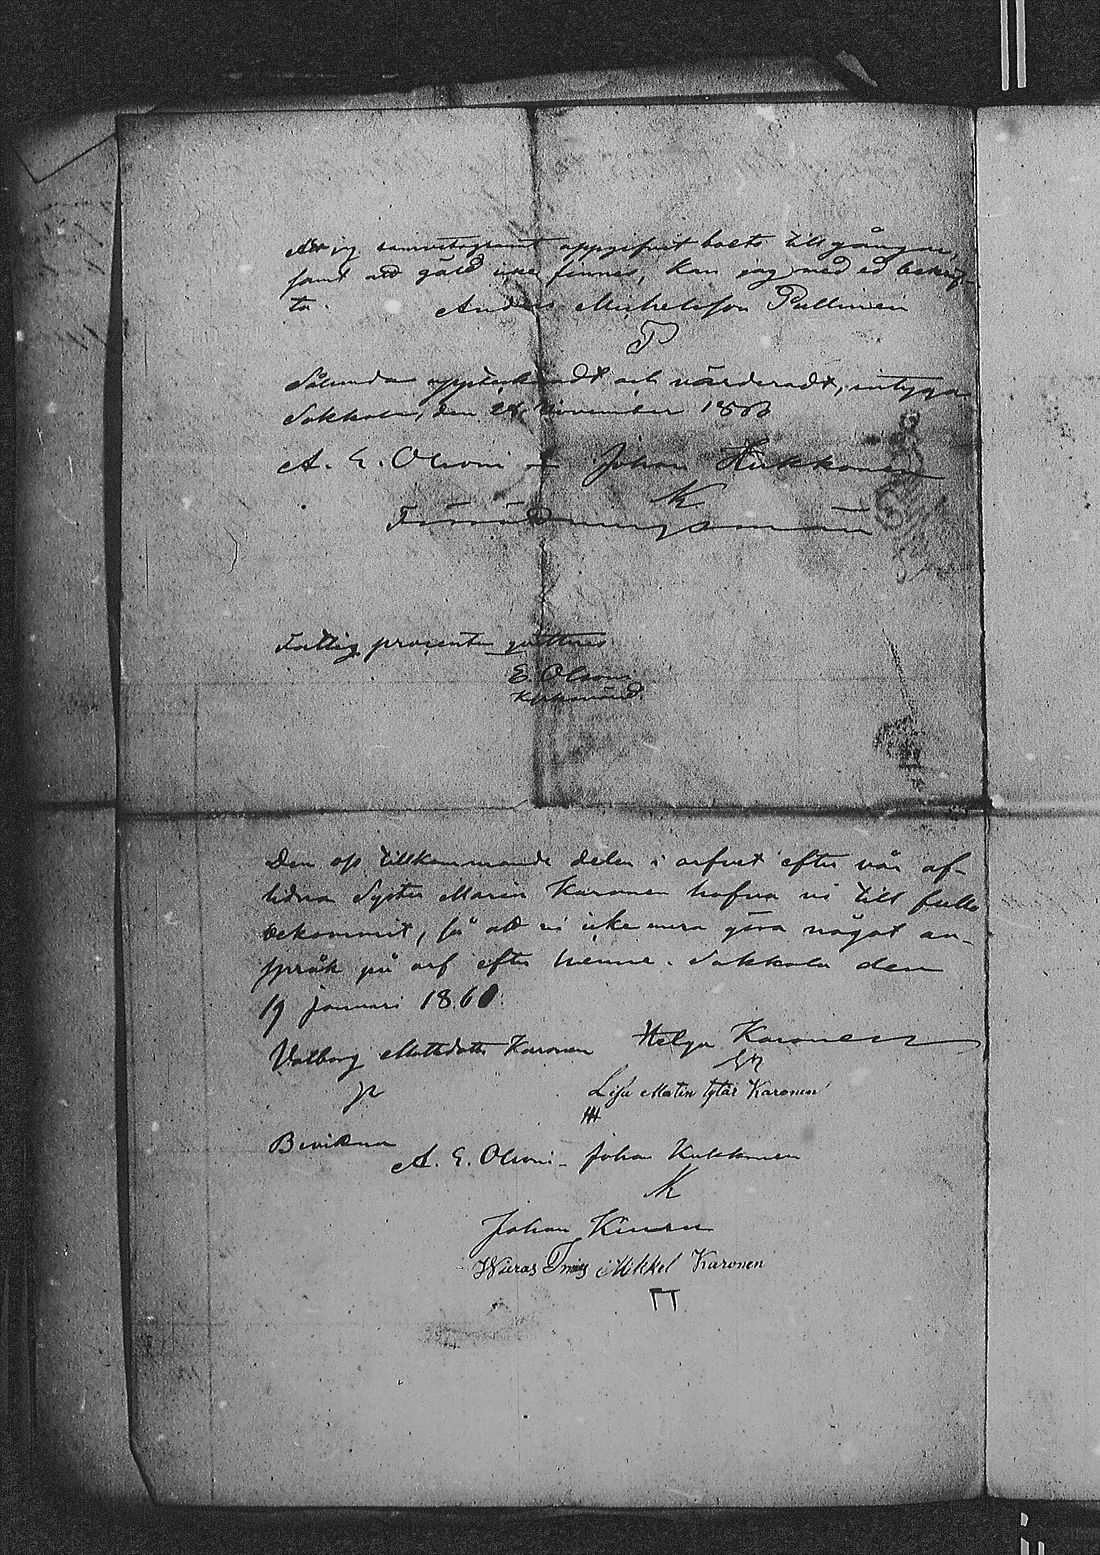 Att jag samvetsgrant uppgifvit boets tillgångar,
samt att gäld icke finnes, kan jag med ed bekräf-
ta. Anders Michelsson Pullinen
P
Sålunda upptecknadt och värderadt, intyga
Sakkola, den 28 November 18
A. E. Olsoni Johan Kukkonen
K
Fattig procenten qvitteras
E. Olsoni
Kyrkovärd.
Den oss tillkommande delen i arfvet efter vår af-
lidna Syster Maria Karonen hafva vi till fullo
bekommit, så att vi icke mera göra något an-
språk på arf efter henne. Sakkola den
19 Januari 1860.
Valborg Mattsdotter Karonen Helga Karonen
Lisa Matin tytär Karonen
Bevittna
A. E. Olsoni - Johan Kukkonen
K
Johan Kinnen
Wieras Mikkel Karonen